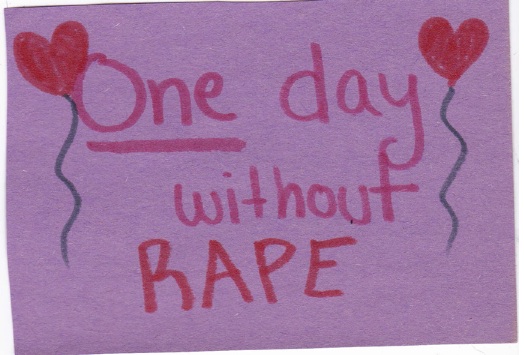 One day
without
RAPE